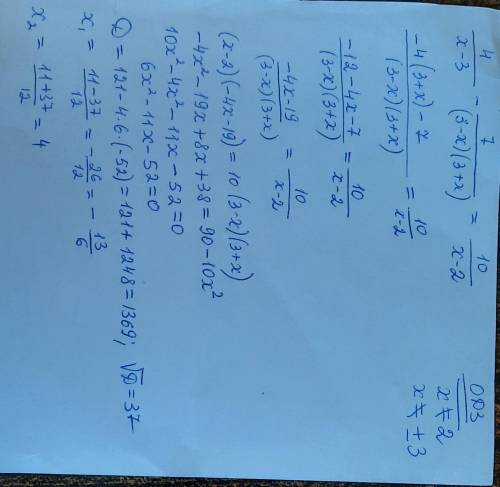 4/(x-3) - 7/((3-x)(3+x)) = 10/(x-2)
ОДЗ
x≠2
x≠±3
(-4(3+x)-7)/((3-x)(3+x)) = 10/(x-2)
(-12-4x-7)/((3-x)(3+x)) = 10/(x-2)
(-4x-19)/((3-x)(3+x)) = 10/(x-2)
(x-2)(-4x-19)=10(3-x)(3+x)
-4x²-19x+8x+38=90-10x²
10x²-4x²-11x-52=0
6x²-11x-52=0
D=121-4·6·(-52)=121+1248=1369; √D=37
x₁ = (11-37)/12 = -26/12 = -13/6
x₂ = (11+37)/12 = 4